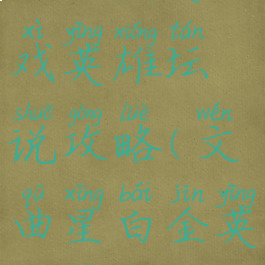 xì yīng xióng tán
戏英雄坛、
shuō gōng lüè wén
说攻略(文
qǔ xīng bái jīn yīng
曲星白金英